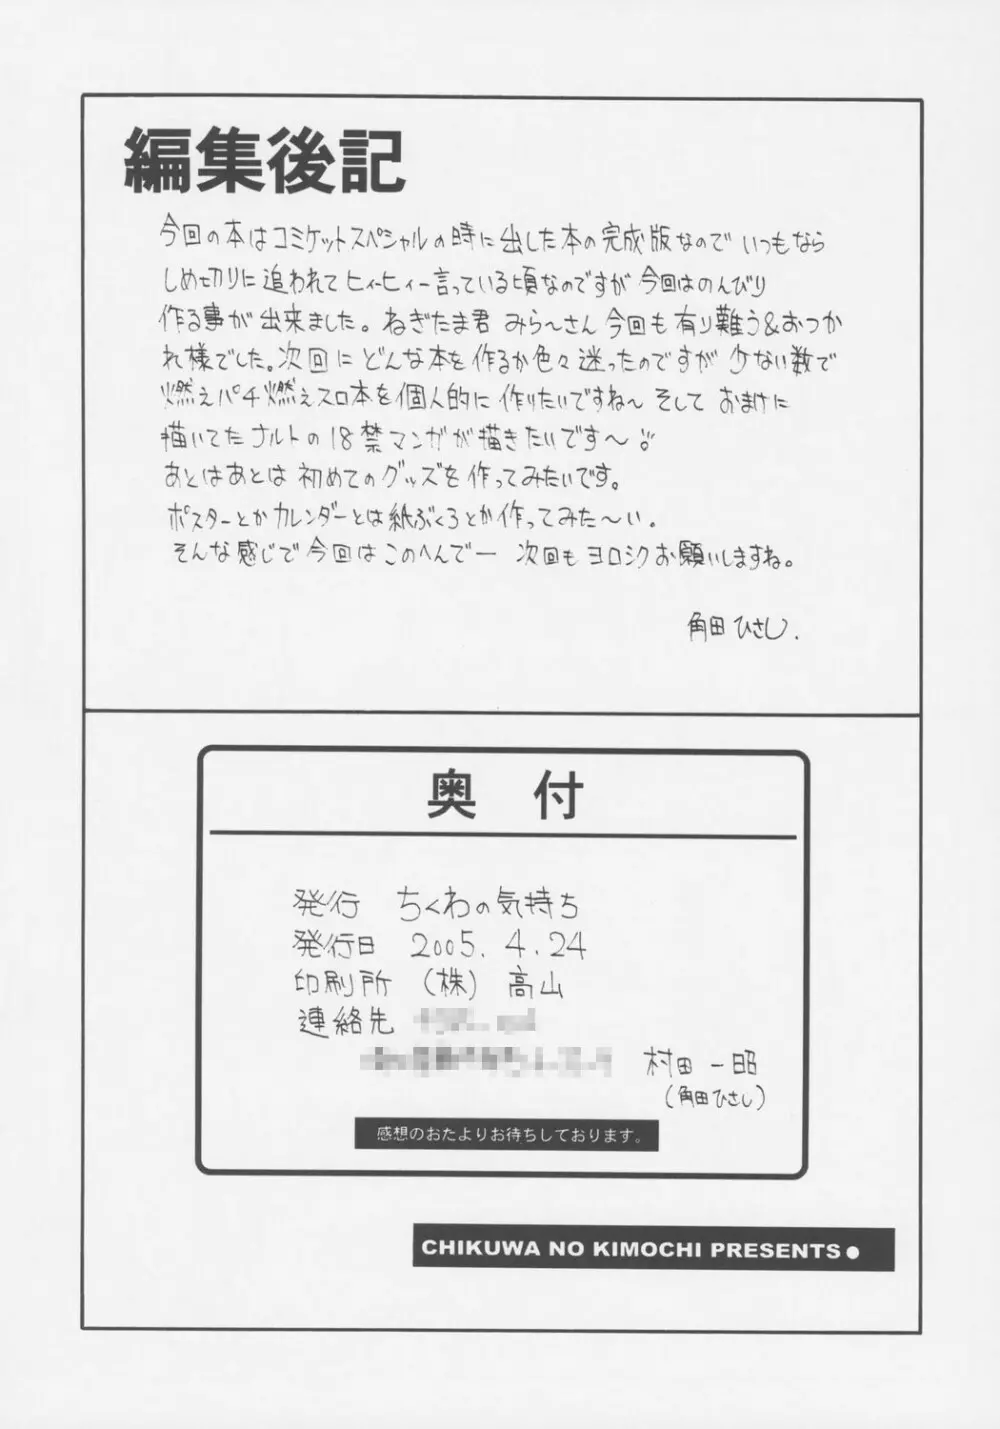 編集後記
今回の本はコミケットスペシャルの時に出した本の完成版なので いつもなら
しめ切りに追われて ヒィーヒィー言っている頃なのですが 今回はのんびり
作る事が出来ました。ねぎたま君 みら～さん 今回も有り難う&おつか
れ様でした。次回に どんな本を作るか色々迷ったのですが 少ない数で
燃えパチ燃えスロ本を個人的に 作りたいですね～ そして おまけに
描いてたナルトの18禁マンガが描きたいです～
あとはあとは 初めてのグッズを作ってみたいです。
ポスターとかカレンダーとは紙ぶくろとか作ってみた～い。
そんな感じで今回はこのへんでー 次回もヨロシクお願いしますね。
角田ひさし.
奥付
発行 ちくわの気持ち
発行日 2005.4.24
印刷所 (株) 高山
連絡先
村田一昭
(角田ひさし)
感想のおたよりお待ちしております。
CHIKUWA NO KIMOCHI PRESENTS●